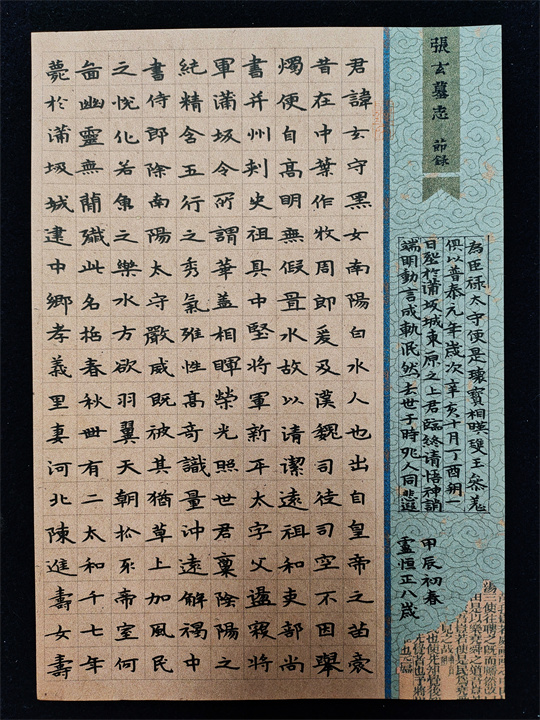 張玄墓志 節錄
君諱玄守黑女南陽白水人也出自皇帝之苗裔
昔在中葉作牧周郎爰及漢魏司徒司空不因舉
燭便自高明無假置水故以清潔遠祖和吏部尚
書并州刺史祖具中堅將軍新平太字父盪寇將
軍蒲坂令所謂華蓋相暉榮光照世君稟陰陽之
純精含五行之秀氣雅性高奇識量沖遠解褐中
書侍郎除南陽太守嚴威既被其猶草上加風民
之悅化若魚之樂水方欲羽翼天朝抓牙帝室何
啚幽靈無簡殲此名哲春秋卅有二太和十七年
薨於蒲坂城建中鄉孝義里妻河北陳進壽女壽
為臣祿太守便是瓌寶相暎雙王
俱以普泰元年歲次辛亥十月丁酉朔一
日塟於蒲坂城東原之上君臨終清悟神誚
端明動言成軌泯然去世于時兆人同悲遐
甲辰初春
靈恒正八歲